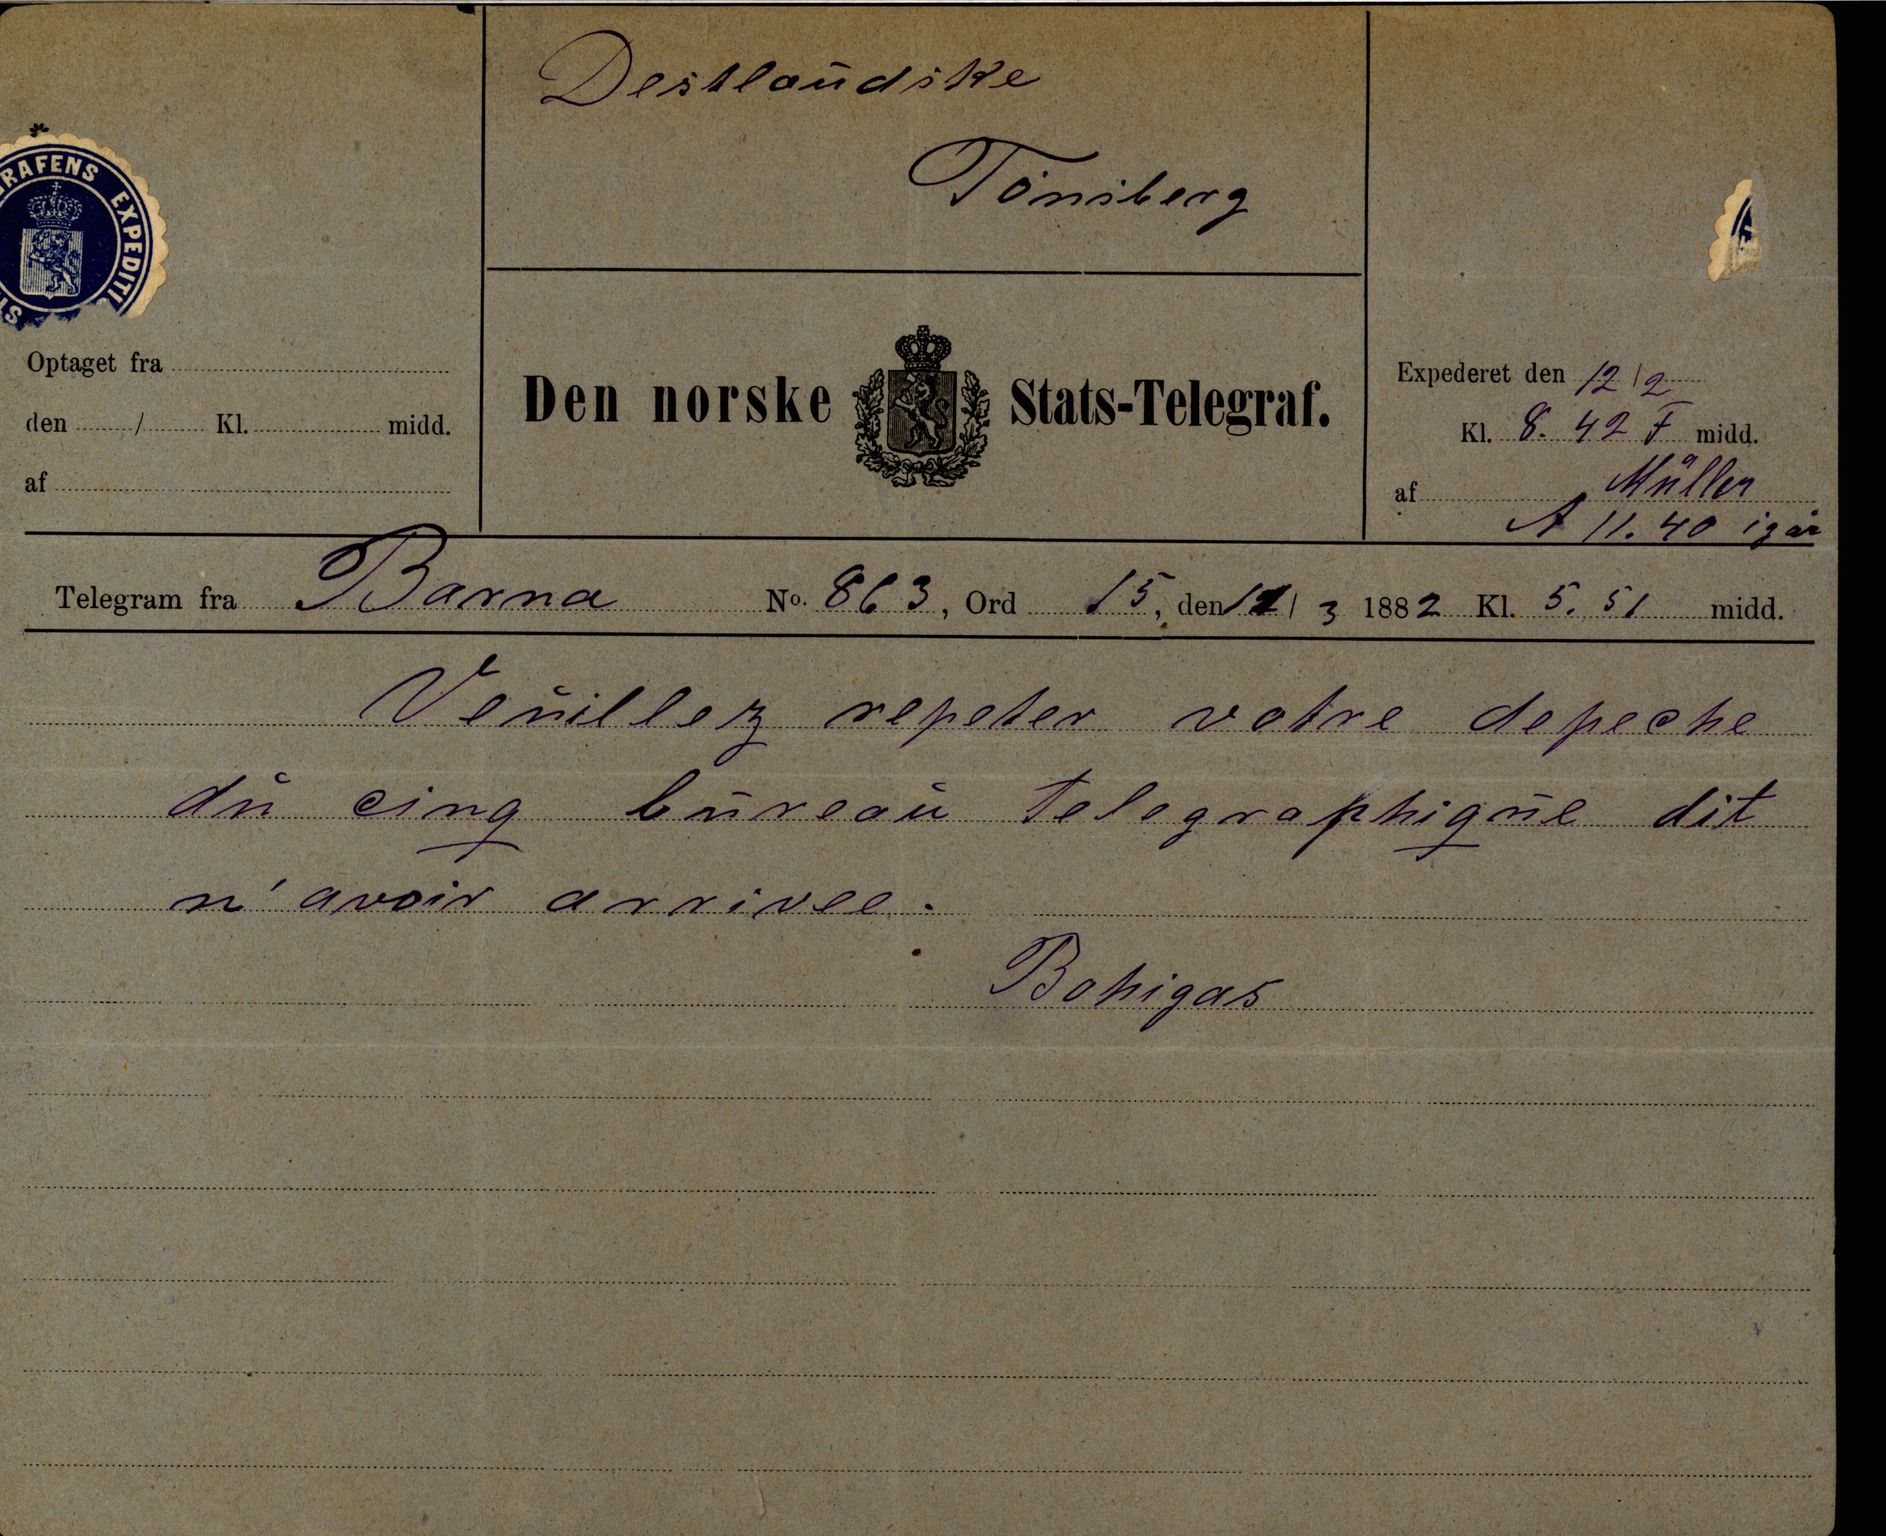 Destlandske
Tönsberg
RAFENS EXPEDITI
ST
Optaget fra
den / Kl. midd.
af
Den norske Stats-Telegraf.
Expederet den 12/2
Kl. 8. 42 F midd.
af Müller
A 11.40 igår
Telegram fra Barna No. 863, Ord 15, den 11/3 1882 Kl. 5. 51 midd.
Veuillez repeter votre depeche
du cinq bureau telegraphique dit
n'avoir arrivee.
Bohigas